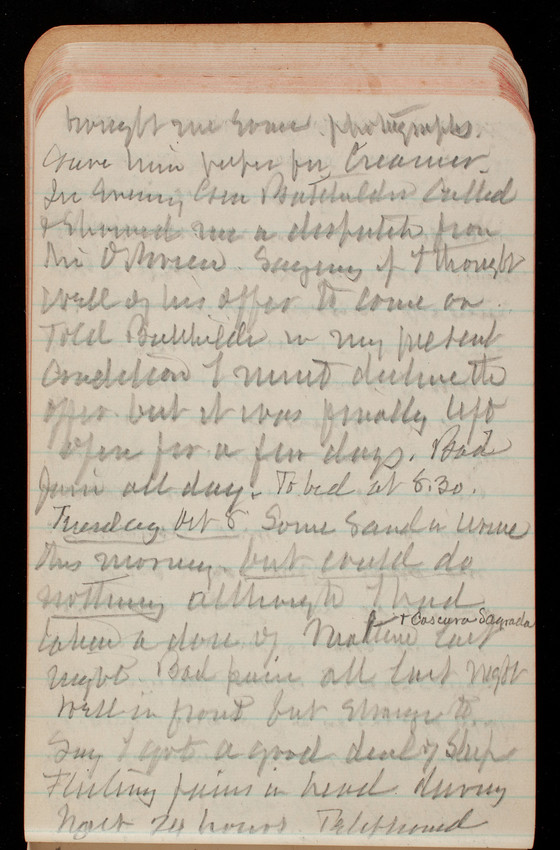 brought me some photographs.
Gave him paper for Creamer.
In evening Geo Batchelder called
& showed me a dispatch from
Mr Osborne. Saying if I thought
well of his offer to come on.
Told Batchelder in my present
condition I must decline the
offer but it was finally left
open for a few days. Bad
pain all day. To bed at 8.30.
Tuesday Oct 8. Some sand in urine
this morning. but could do
nothing although I had
taken a dose of Maltine & Cascara Sagrada last
night. Bad pain all last night
well in front but strange to
say I got a good deal of sleep
Flitting pains in head during
next 24 hours. Telephoned